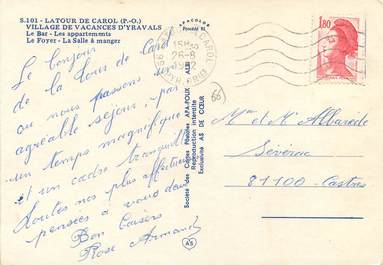 S.101 - LATOUR DE CAROL (P.-O.)
VILLAGE DE VACANCES D'YRAVALS
Le Bar - Les appartements
Le Foyer - La Salle à manger
APACOLOR
66
Le bonjour
de la Tour de Carol
ou nous passons un
agréable séjour, par
un temps magnifique
et un cadre tranquille
toutes nos plus affectueuses
pensées a vous deux
Bon Baisers
Rose Armand
Société des Cartes Postales APA-POUX - ALBI
Reproduction interdite
Exclusivité AS DE CŒUR
AS
1,80
Mme et M Albarede
Séverac
81100 - Castres